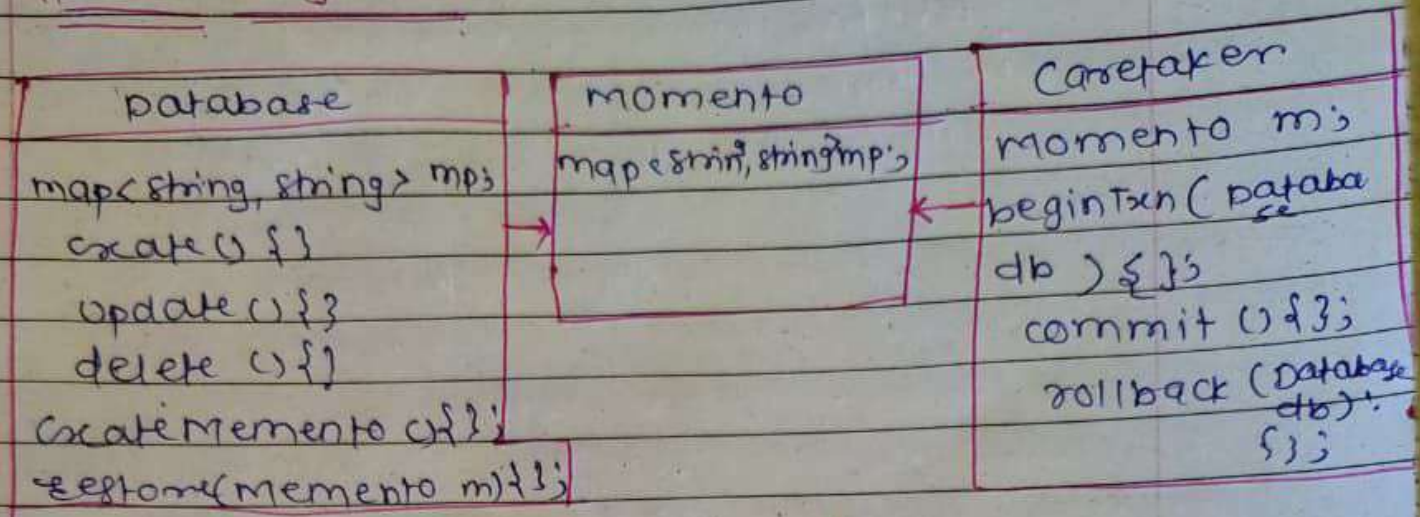 Database
map<string, string> mp;
create () { }
update () { }
delete () { }
create Memento () { };
restore(Memento m) { };
Momento
map<string, string> mp;
Caretaker
Momento m;
begin Txn ( Databa
se
db ) { };
commit () { };
rollback (Database
db) :
{ };